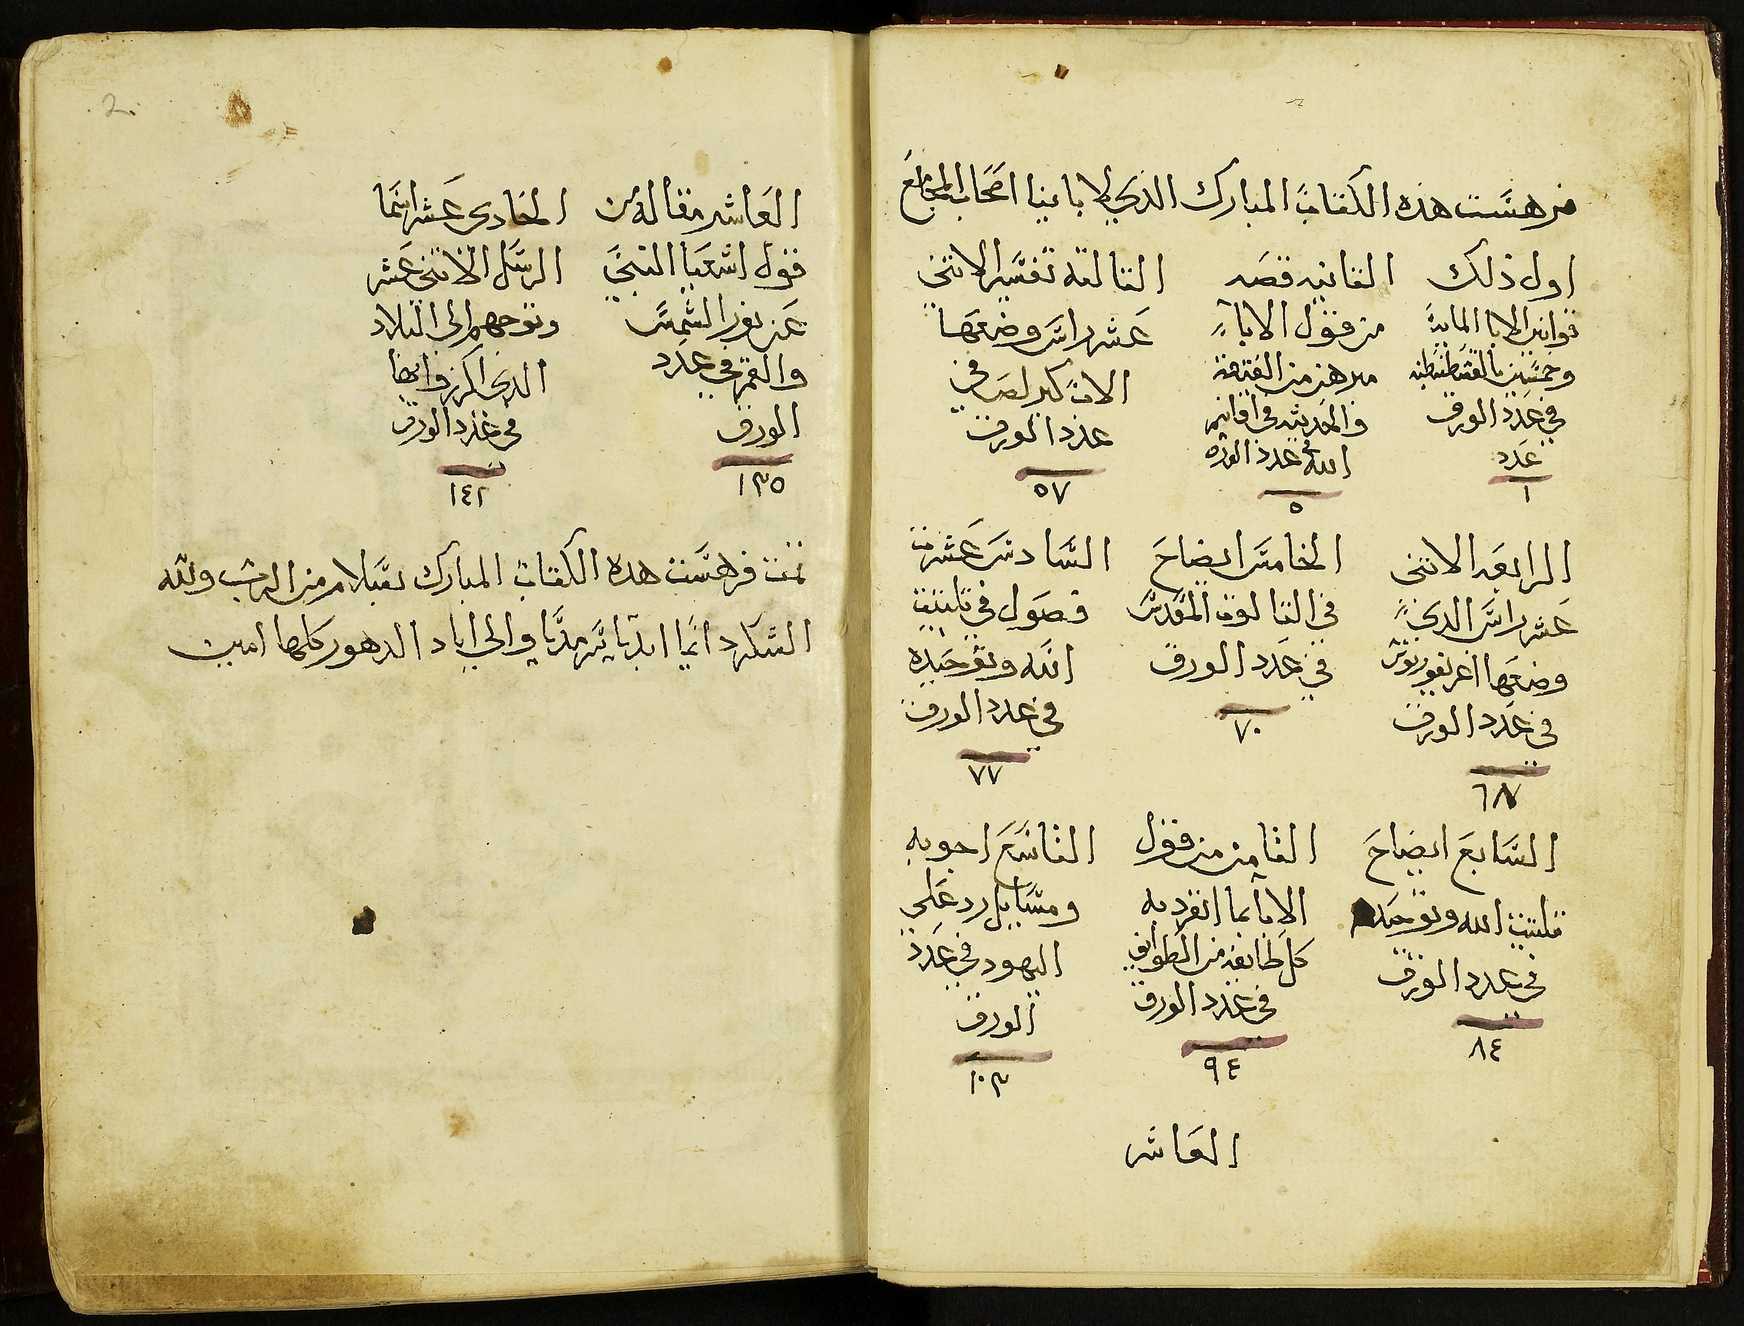 فرهست هذه الكتاب المبارك الذي لاباينا اصحاب المجامع
اول ذلك
قوانين الابا المايه
وخمسين بالقسطنطينيه
في عدد الورق
عدد
١
الثانيه قصه
من قول الاباء
مبرهن من العتيقه
والحديثه في اقانيم
الله في عدد الورقه
٥
الثالثه تفسير الاثني
عشر راس وضعها
الاب كيرلص في
عدد الورق
٥٧
الرابعه الاثني
عشر راس الذي
وضعها اغريغوريوس
في عدد الورق
٦٨
الخامس ايضاح
في الثالوث المقدس
في عدد الورق
٧٠
السادس عشرت
فصول في تثليث
الله وتوحيده
في عدد الورق
٧٧
السابع ايضاح
تثليث الله وتوحيده
في عدد الورق
٨٤
الثامن من قول
الابا بما انفرد به
كل طايفه من الطوايف
في عدد الورق
٩٤
التاسع اجوبه
ومسايل رد علي
اليهود في عدد
الورق
١٠٣
العاشر
2
العاشر مقاله من
قول اشعيا النبي
عن نور الشمس
والقمر في عدد
الورق
١٣٥
الحادى عشر اسما
الرسل الاثنى عشر
وتوجههم الى البلاد
الذى اكرزوا بها
في عدد الورق
١٤٢
تمت فرهست هذه الكتاب المبارك بسلام من الرب ولله
الشكر دائما ابديا سرمديا والي اباد الدهور كلها امين